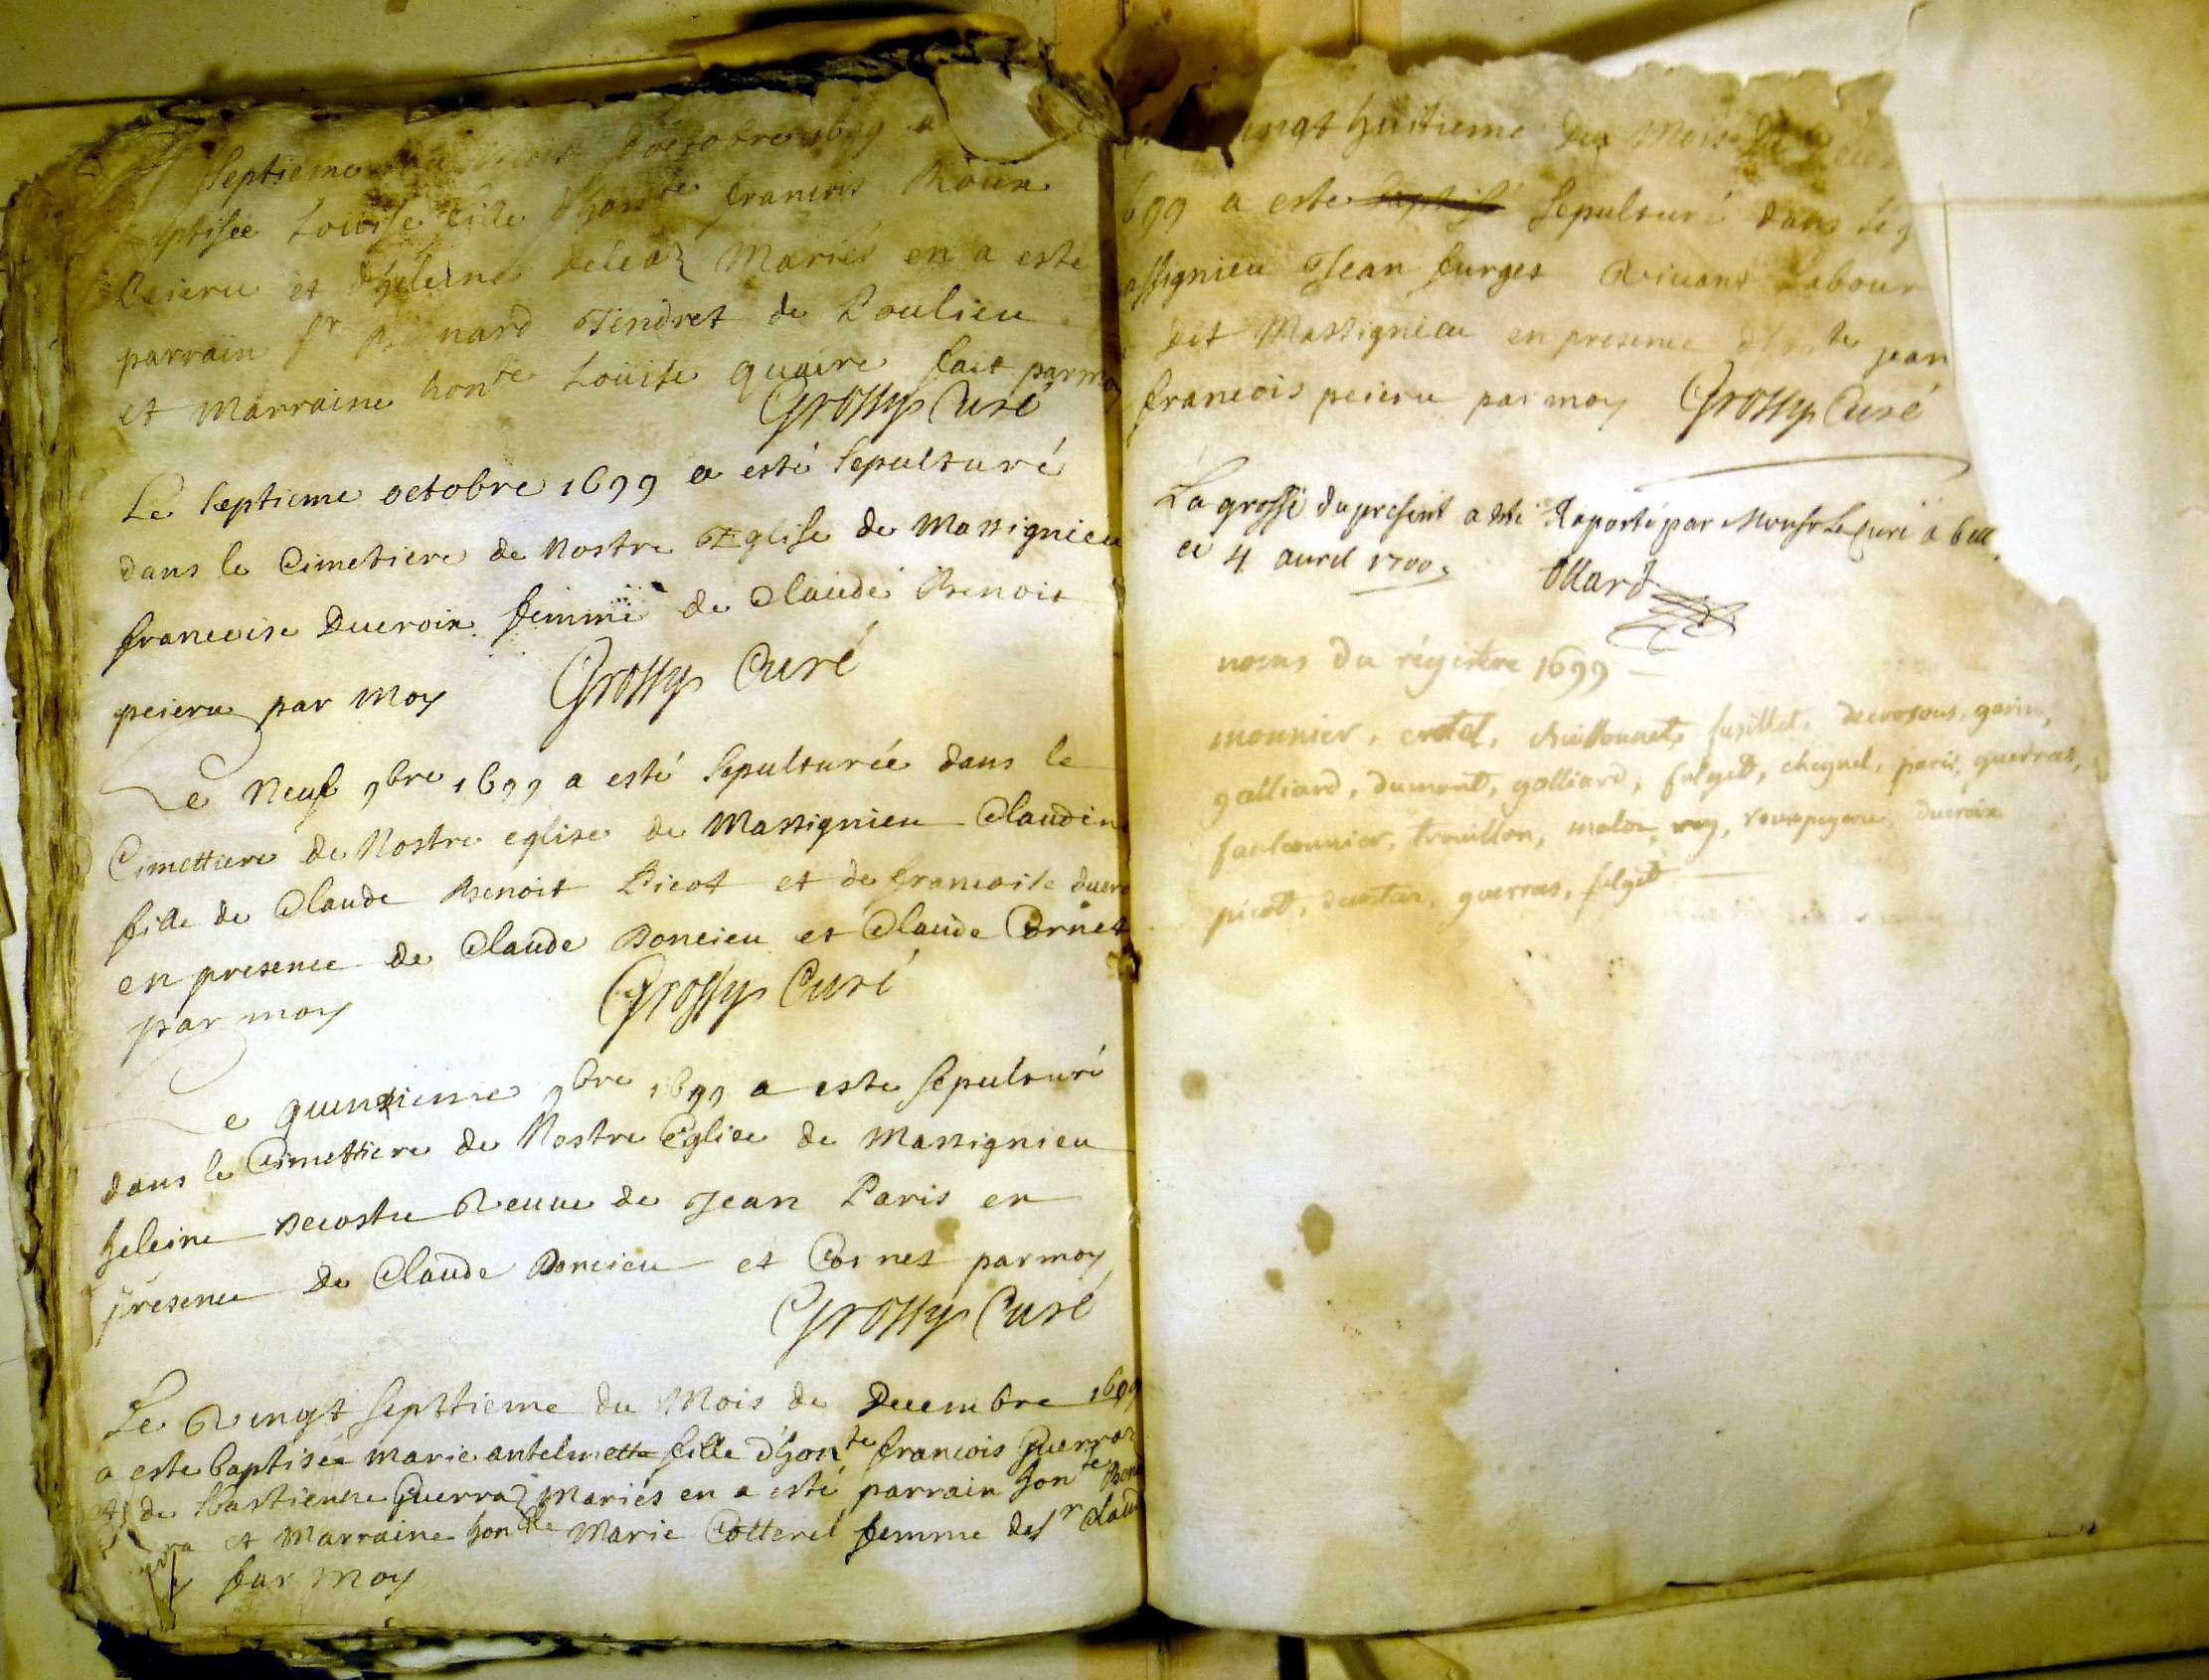 Septieme du mois d'octobre 1699 a
ptisée Louise fille d'hon.te francois Roux
Peieru et d'heleine Mariés en a esté
parrain s.r nard Tendret de Poulieu
et Marraine hon.te Louise quaire fait par moy
Grossy Curé
Le septieme octobre 1699 a esté sepulturé
dans le Cimetiere de Nostre Eglise de Massignieu
francoise Ducroix femme de Claude Benoit
peieru par Moy Grossy Curé
Le Neuf 9bre 1699 a esté sepulturée dans le
Cimettiere de Nostre eglise de Massignieu Claudine
fille de Claude Benoit Picot et de francoise ducro
en presence de Claude Doncieu et Claude Cornet
par moy Grossy Curé
Le quinzieme 9bre 1699 a este sepulturé
dans le Cimettiere de Nostre Eglise de Massignieu
heleine Decoste Veuue de Jean Paris en
presence de Claude Doncieu et Cornet par moy
Grossy Curé
Le Vingt septtieme du Mois de Decembre 1699
a este baptisée marie antelmette fille d'hon.te francois Guerraz
et de Bastienne Guerraz Mariés en a esté parrain hon.te
ra et Marraine hon.te Marie Cotterel femme de s.r Claud
par moy
ingt huitieme du Mois de
1699 a este baptisé sepulturé dans
assignieu Jean furges Viuant Labour
dit Massignieu en presence d'hon.te jean
francois peieru par moy Grossy Curé
La grosse du present a esté Raporté par Monsr Le Curé a bell
ce 4 auril 1700.
noms du régistre 1699
monnier, crotel, fusillet, decrosons, garin,
galliard, dumont, galliard, fulget, chegnel, paris, guerras,
faulconnier, trouillon, molon, rey, ducroix
picot, guerras, fulget